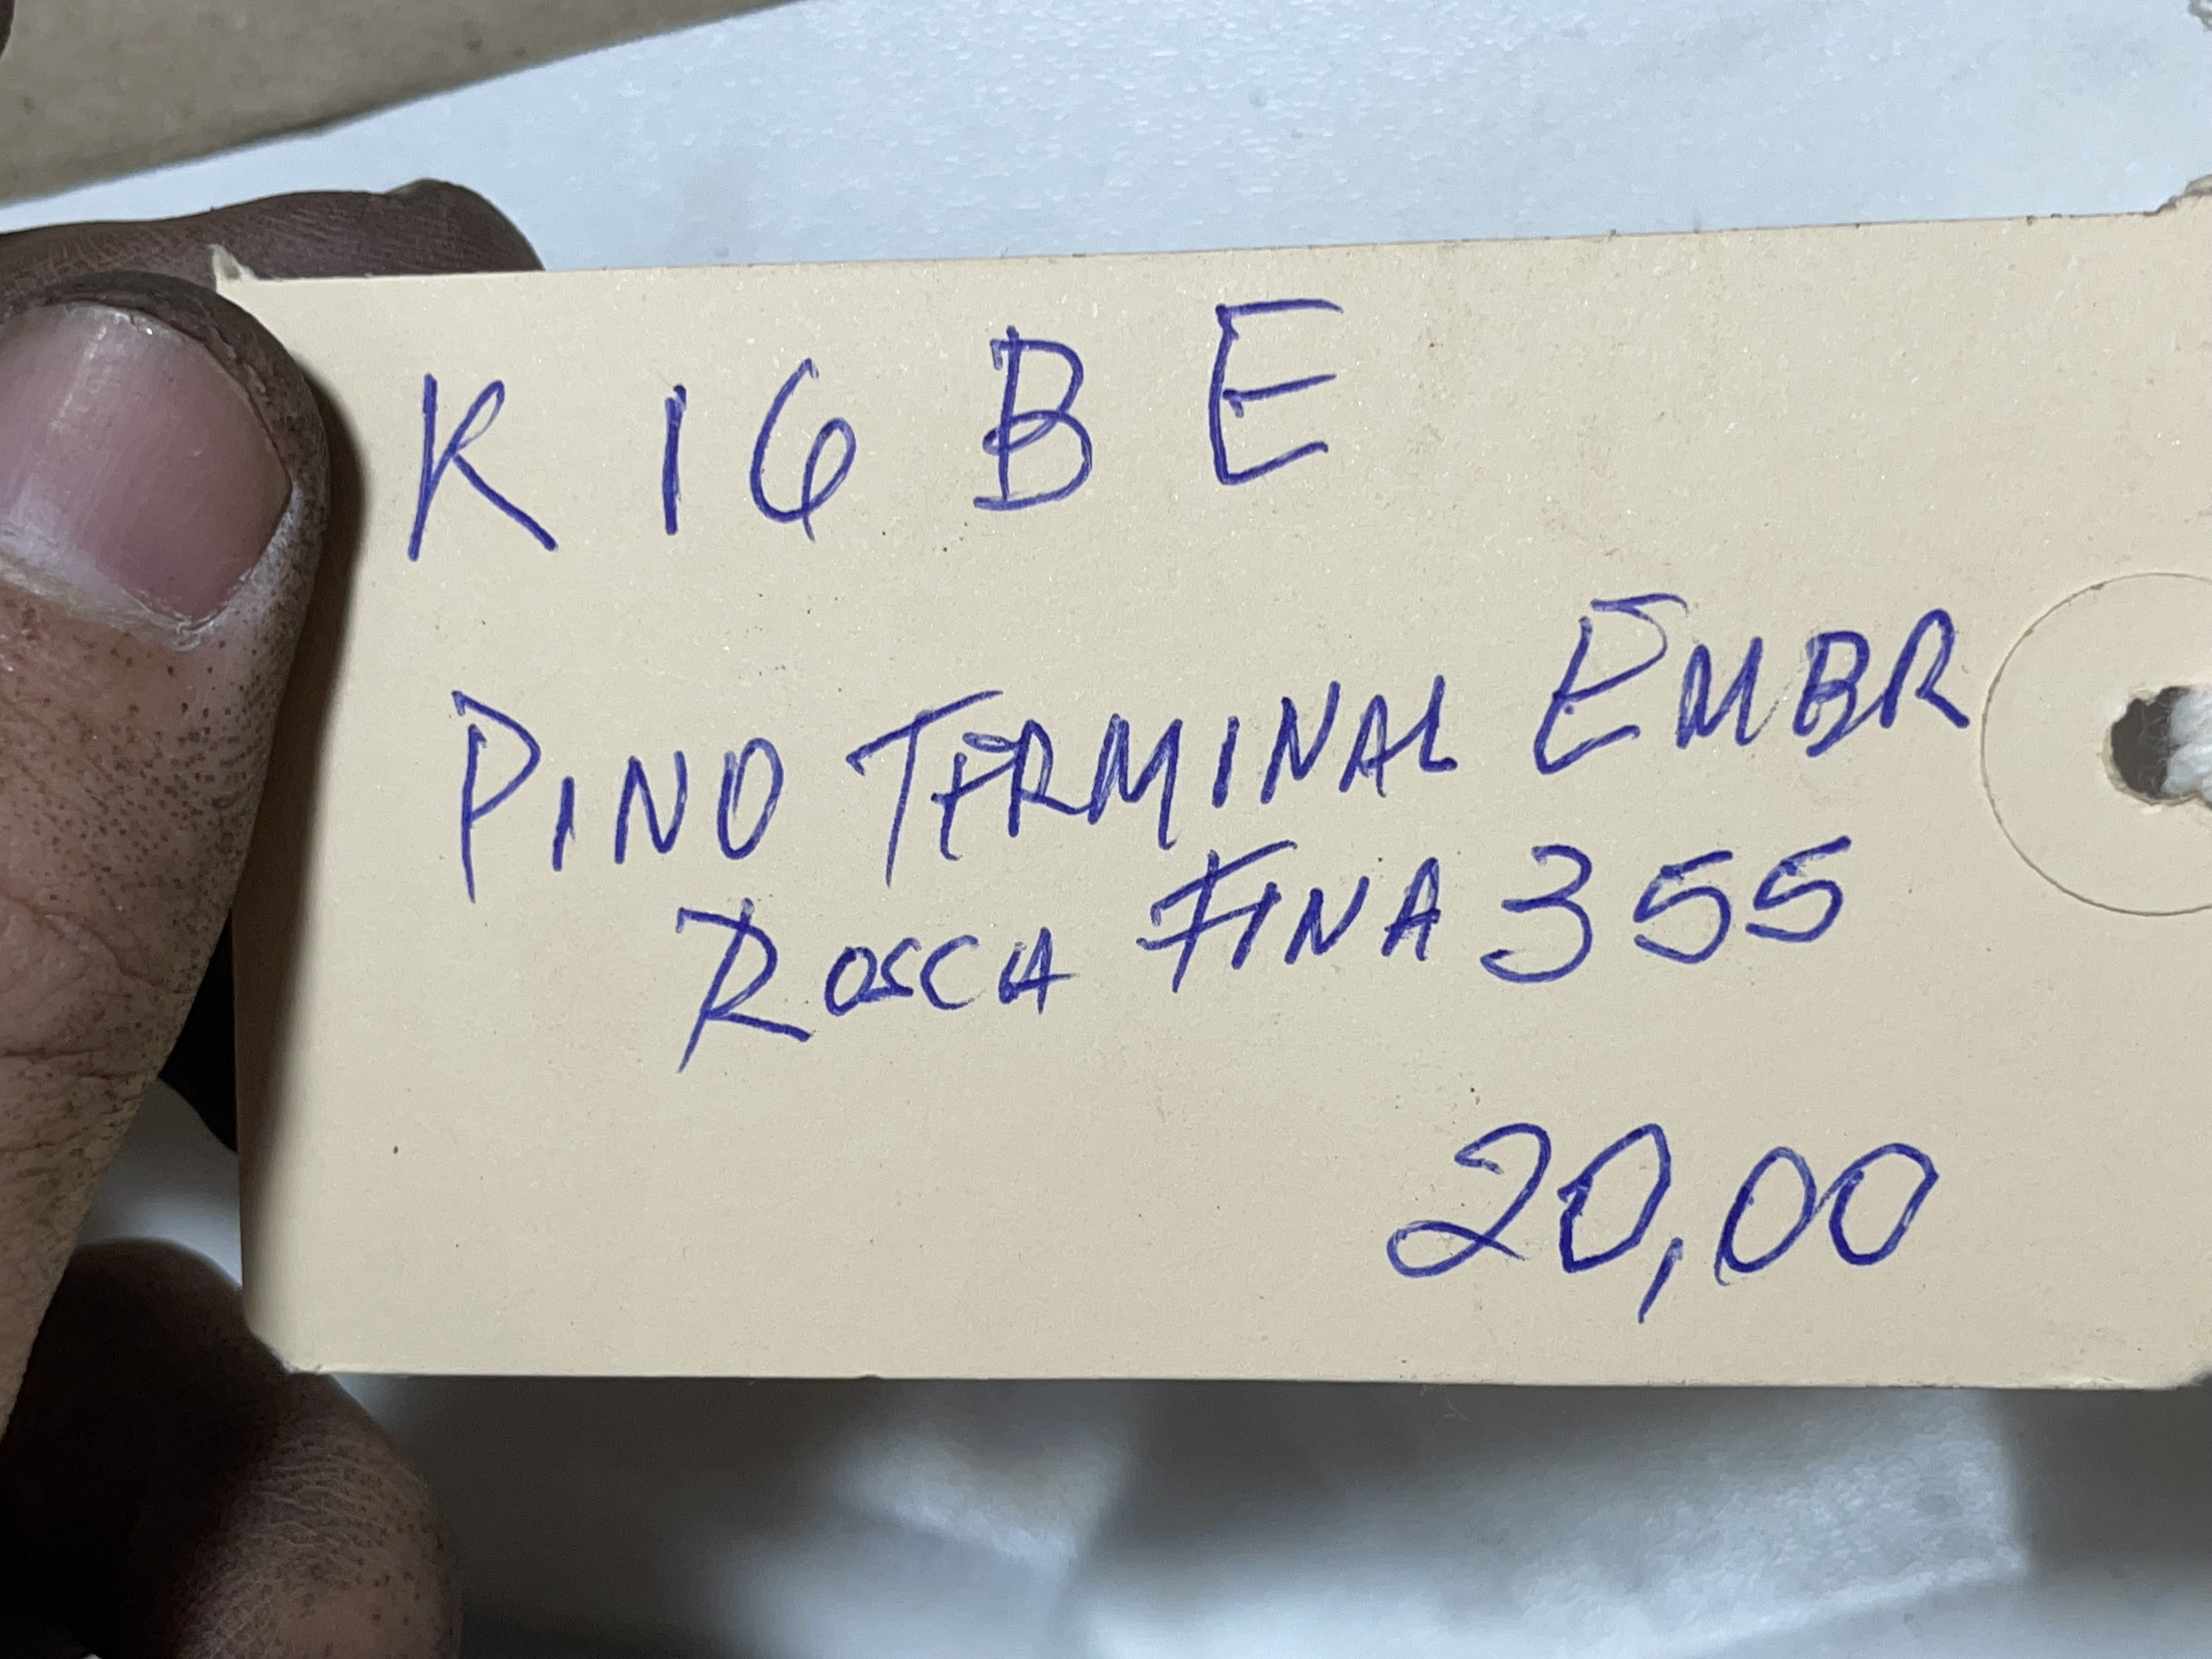 K 16 B E
PINO TERMINAL EMBR
ROSCA FINA 355
20,00